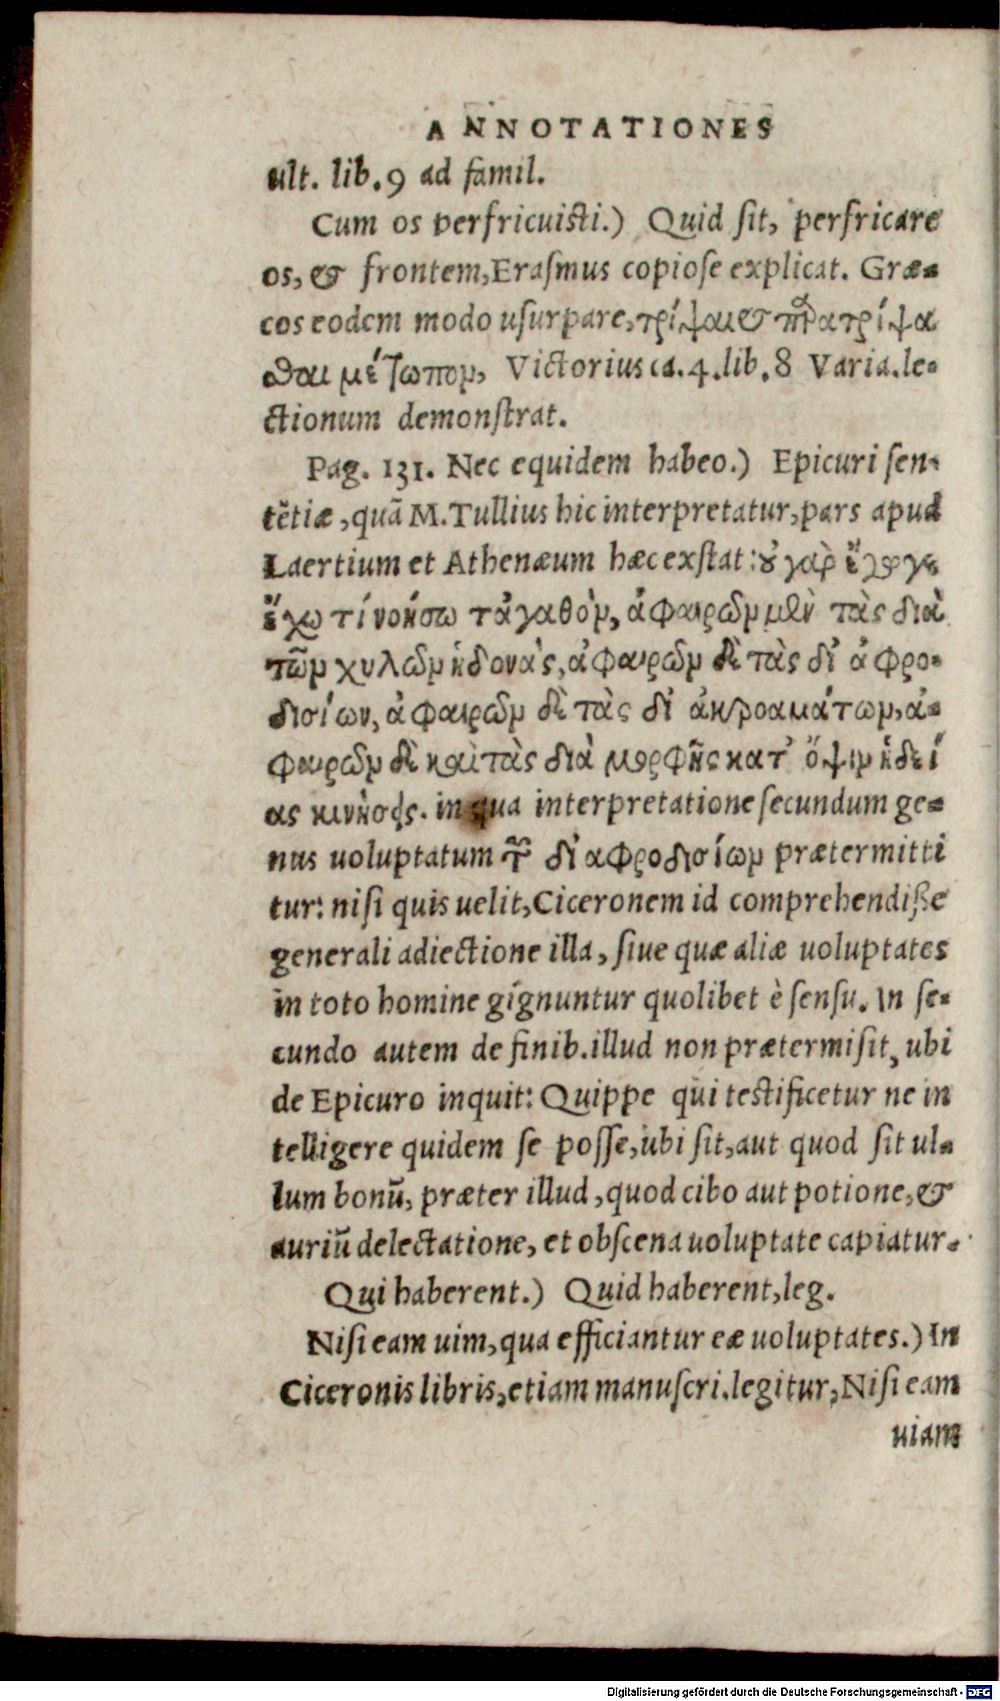 ANNOTATIONES
ult. lib.9 ad famil.
Cum os perfricuisti.) Quid sit, perfricare
os, & frontem, Erasmus copiose explicat. Græ-
cos eodem modo usurpare, τρίψαι & παρατρίψα
σθαι μέτωπον, Victorius ca.4.lib.8 Varia.le-
ctionum demonstrat.
Pag. 131. Nec equidem habeo.) Epicuri sen-
tētiæ, quā M.Tullius hic interpretatur, pars apud
Laertium et Athenæum hæc exstat: οὐ γὰρ ἔγωγε
ἔχω τί νοήσω τἀγαθὸν, ἀφαιρῶν μὲν τὰς διὰ
τῶν χυλῶν ἡδονὰς, ἀφαιρῶν δὲ τὰς δι᾽ ἀφρο-
δισίων, ἀφαιρῶν δὲ τὰς δι᾽ ἀκροαμάτων, ἀ-
φαιρῶν δὲ καὶ τὰς διὰ μορφῆς κατ᾽ ὄψιν ἡδεί
ας κινήσεις. in qua interpretatione secundum ge-
nus uoluptatum τῶν δι᾽ ἀφροδισίων prætermitti
tur: nisi quis uelit, Ciceronem id comprehendisse
generali adiectione illa, siue quæ aliæ uoluptates
in toto homine gignuntur quolibet è sensu. In se-
cundo autem de finib. illud non prætermisit, ubi
de Epicuro inquit: Quippe qui testificetur ne in
telligere quidem se posse, ubi sit, aut quod sit ul-
lum bonū, præter illud, quod cibo aut potione, &
auriū delectatione, et obscena uoluptate capiatur.
Qui haberent.) Quid haberent, leg.
Nisi eam uim, qua efficiantur eæ uoluptates.) In
Ciceronis libris, etiam manuscri. legitur, Nisi eam
uiam
Digitalisierung gefördert durch die Deutsche Forschungsgemeinschaft - DFG